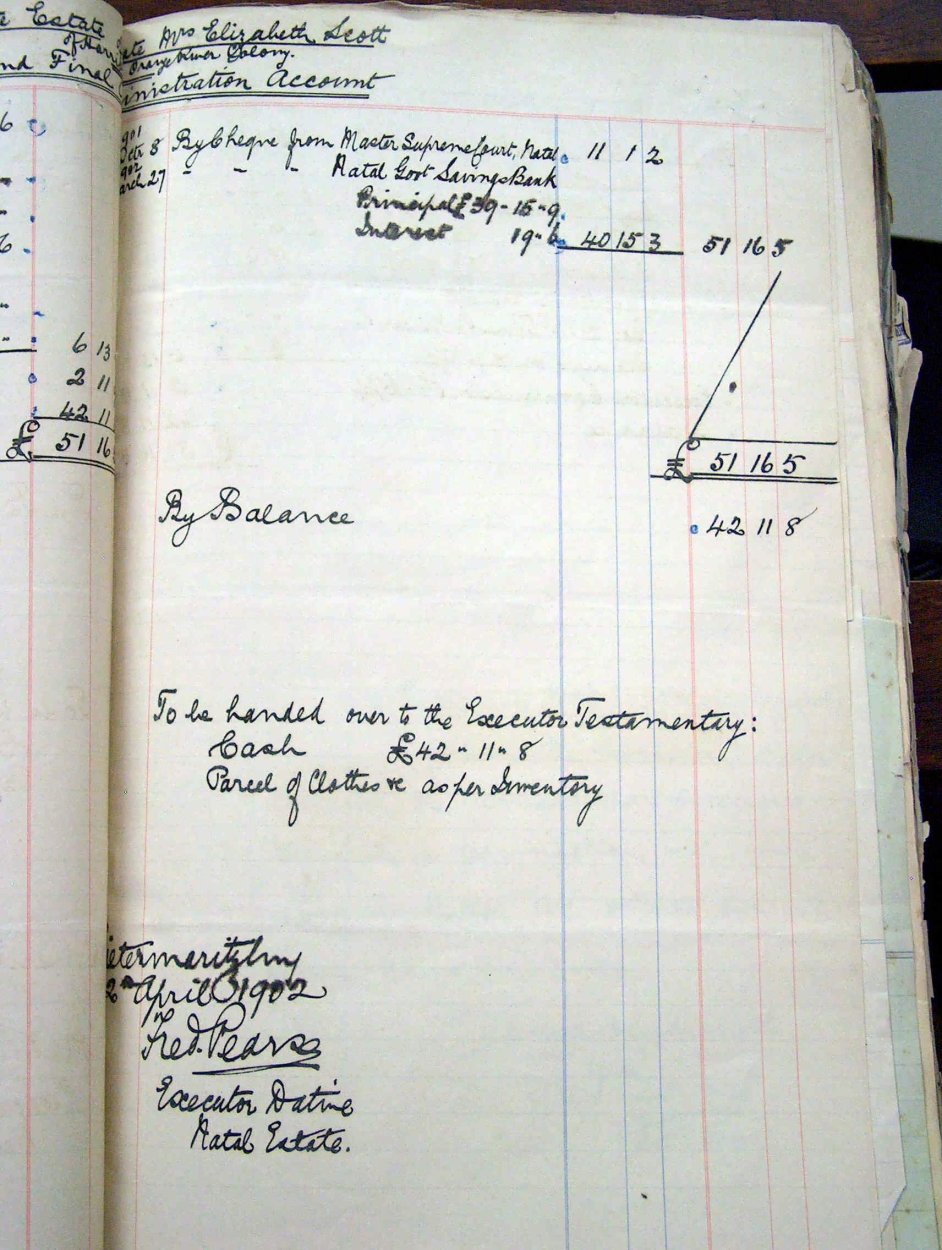 e Estate
of Harri
nd Final
6
6
6 13
2 11
42 11
£ 51 16
ate Mrs Elizabeth Scott
Orange River Colony.
inistration Account
901
Octr 8 By Cheque from Master Supreme Court, Natal 11 1 2
902
arch 27 " " " Natal Govt Savings Bank
Principal £39-15-9
Interest 19-6 40 15 3 51 16 5
£ 51 16 5
By Balance 42 11 8
To be handed over to the Executor Testamentary:
Cash £42-11-8
Parcel of Clothes &c as per Inventory
ietermaritzburg
2nd April 1902
Fred. Pearse
Executor Dative
Natal Estate.